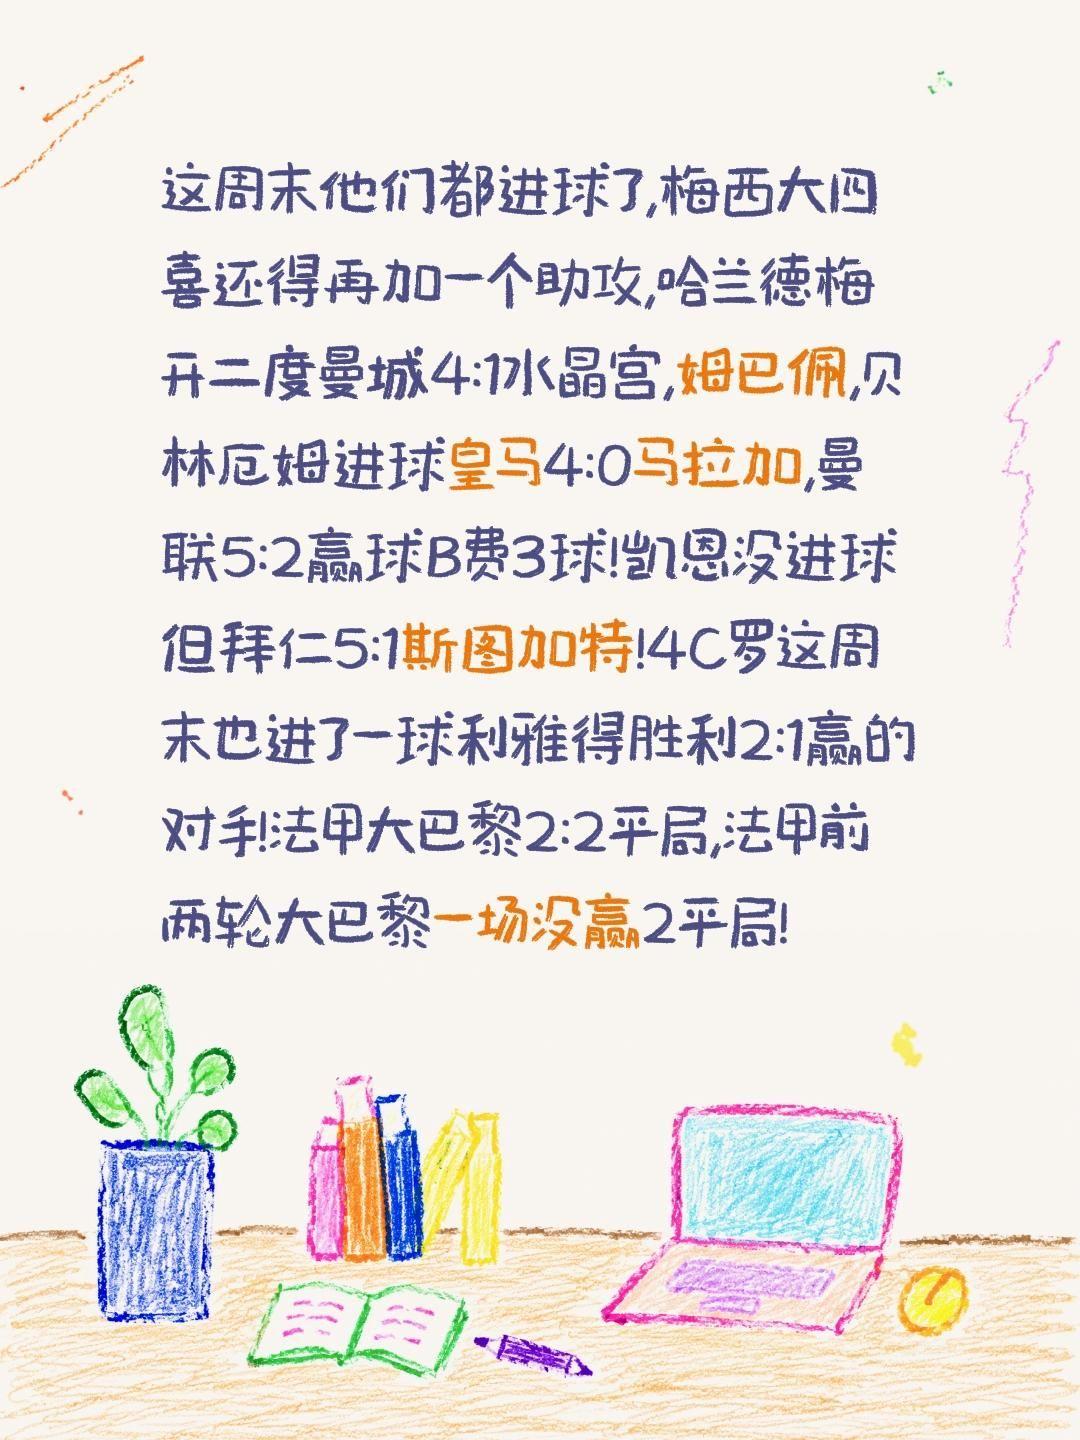 这周末他们都进球了,梅西大四
喜还得再加一个助攻,哈兰德梅
开二度曼城4:1水晶宫,姆巴佩,贝
林厄姆进球皇马4:0马拉加,曼
联5:2赢球B费3球!凯恩没进球
但拜仁5:1斯图加特!4C罗这周
末也进了一球利雅得胜利2:1赢的
对手!法甲大巴黎2:2平局,法甲前
两轮大巴黎一场没赢2平局!